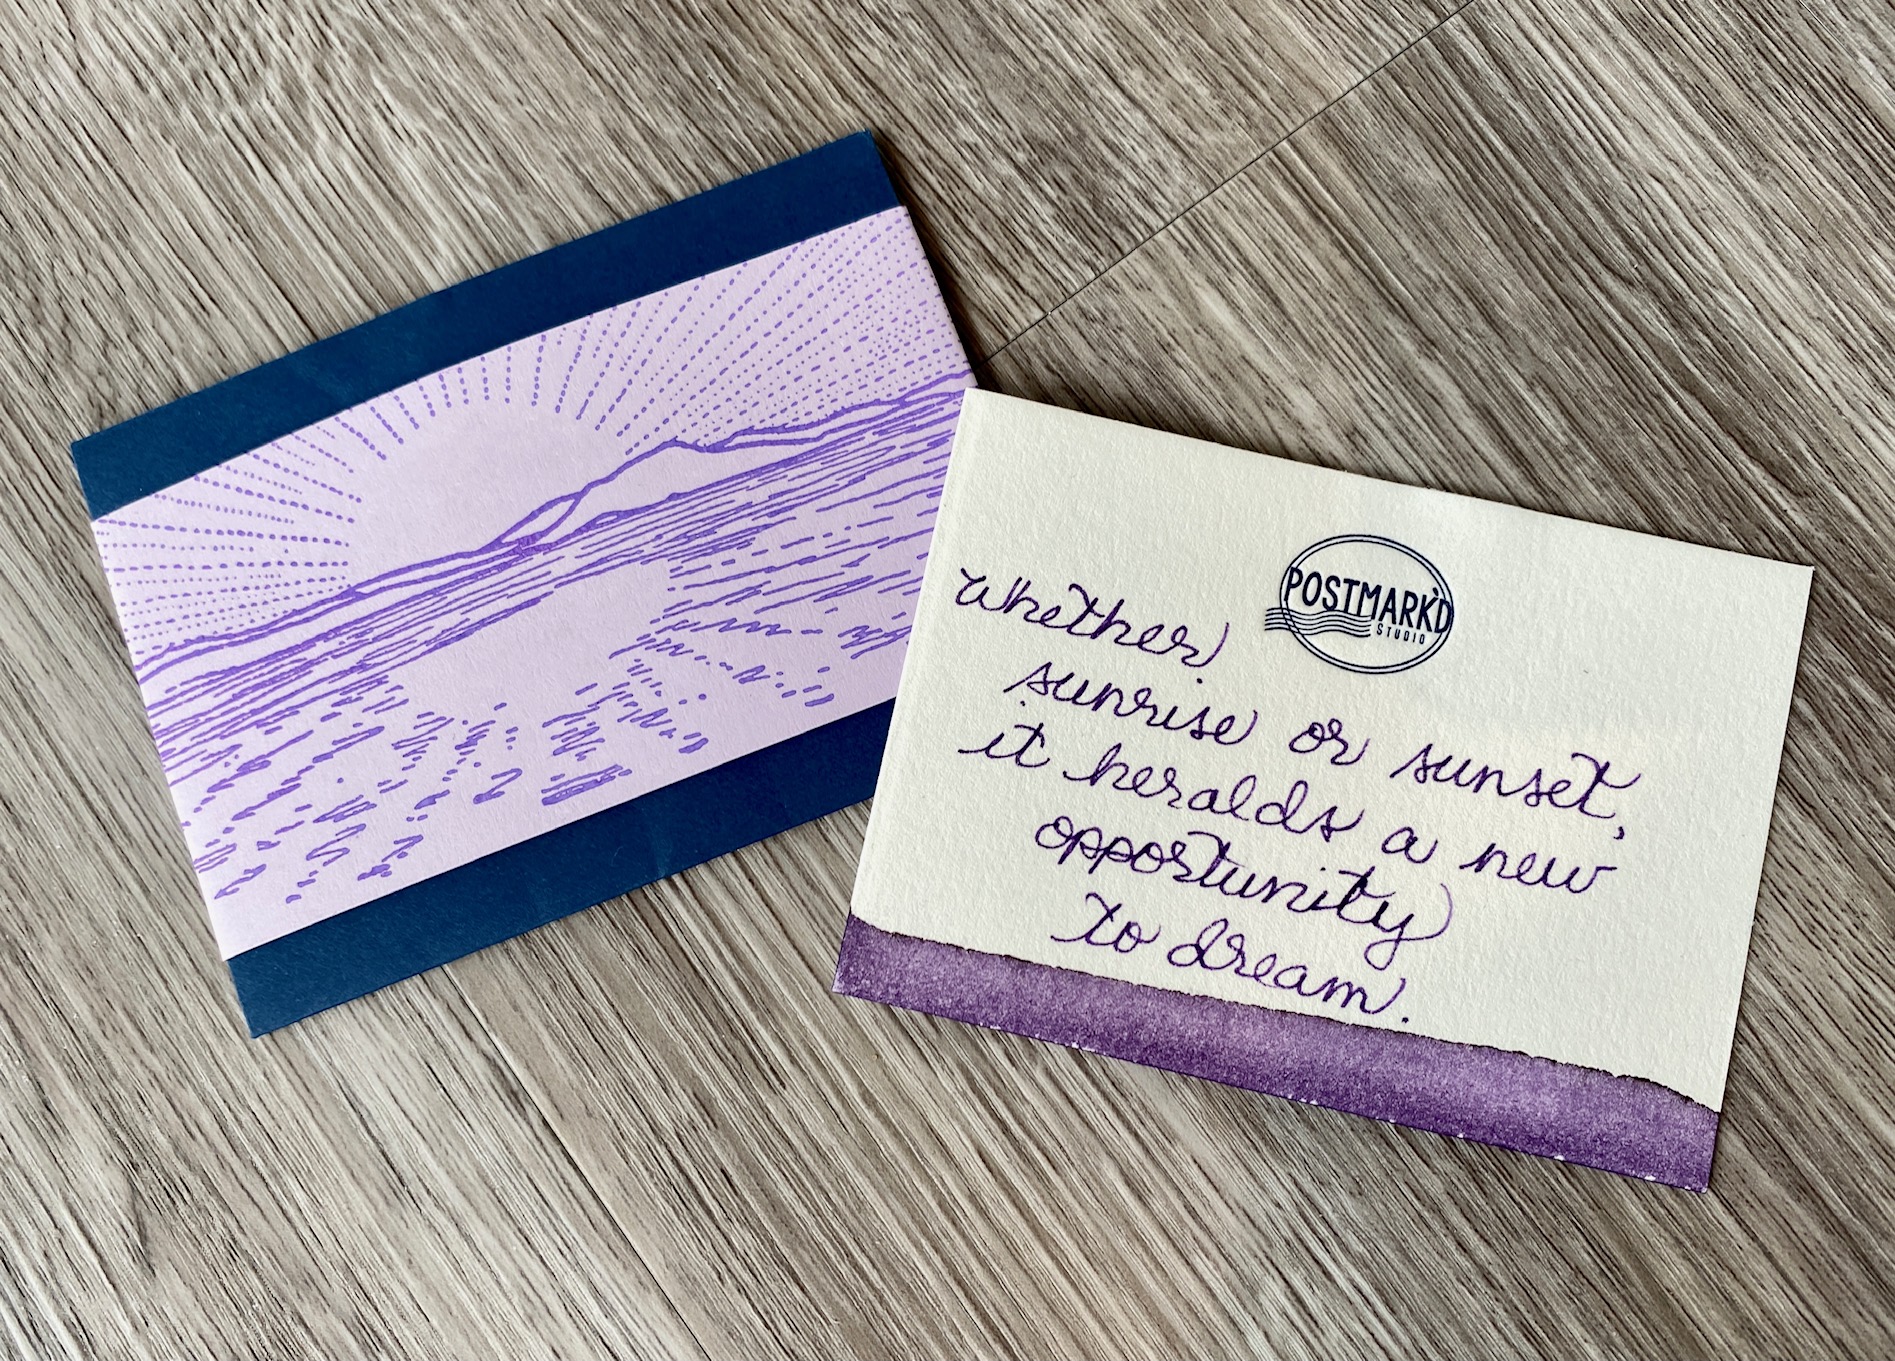 POSTMARK'D
STUDIO
Whether
sunrise or sunset,
it heralds a new
opportunity
to dream.